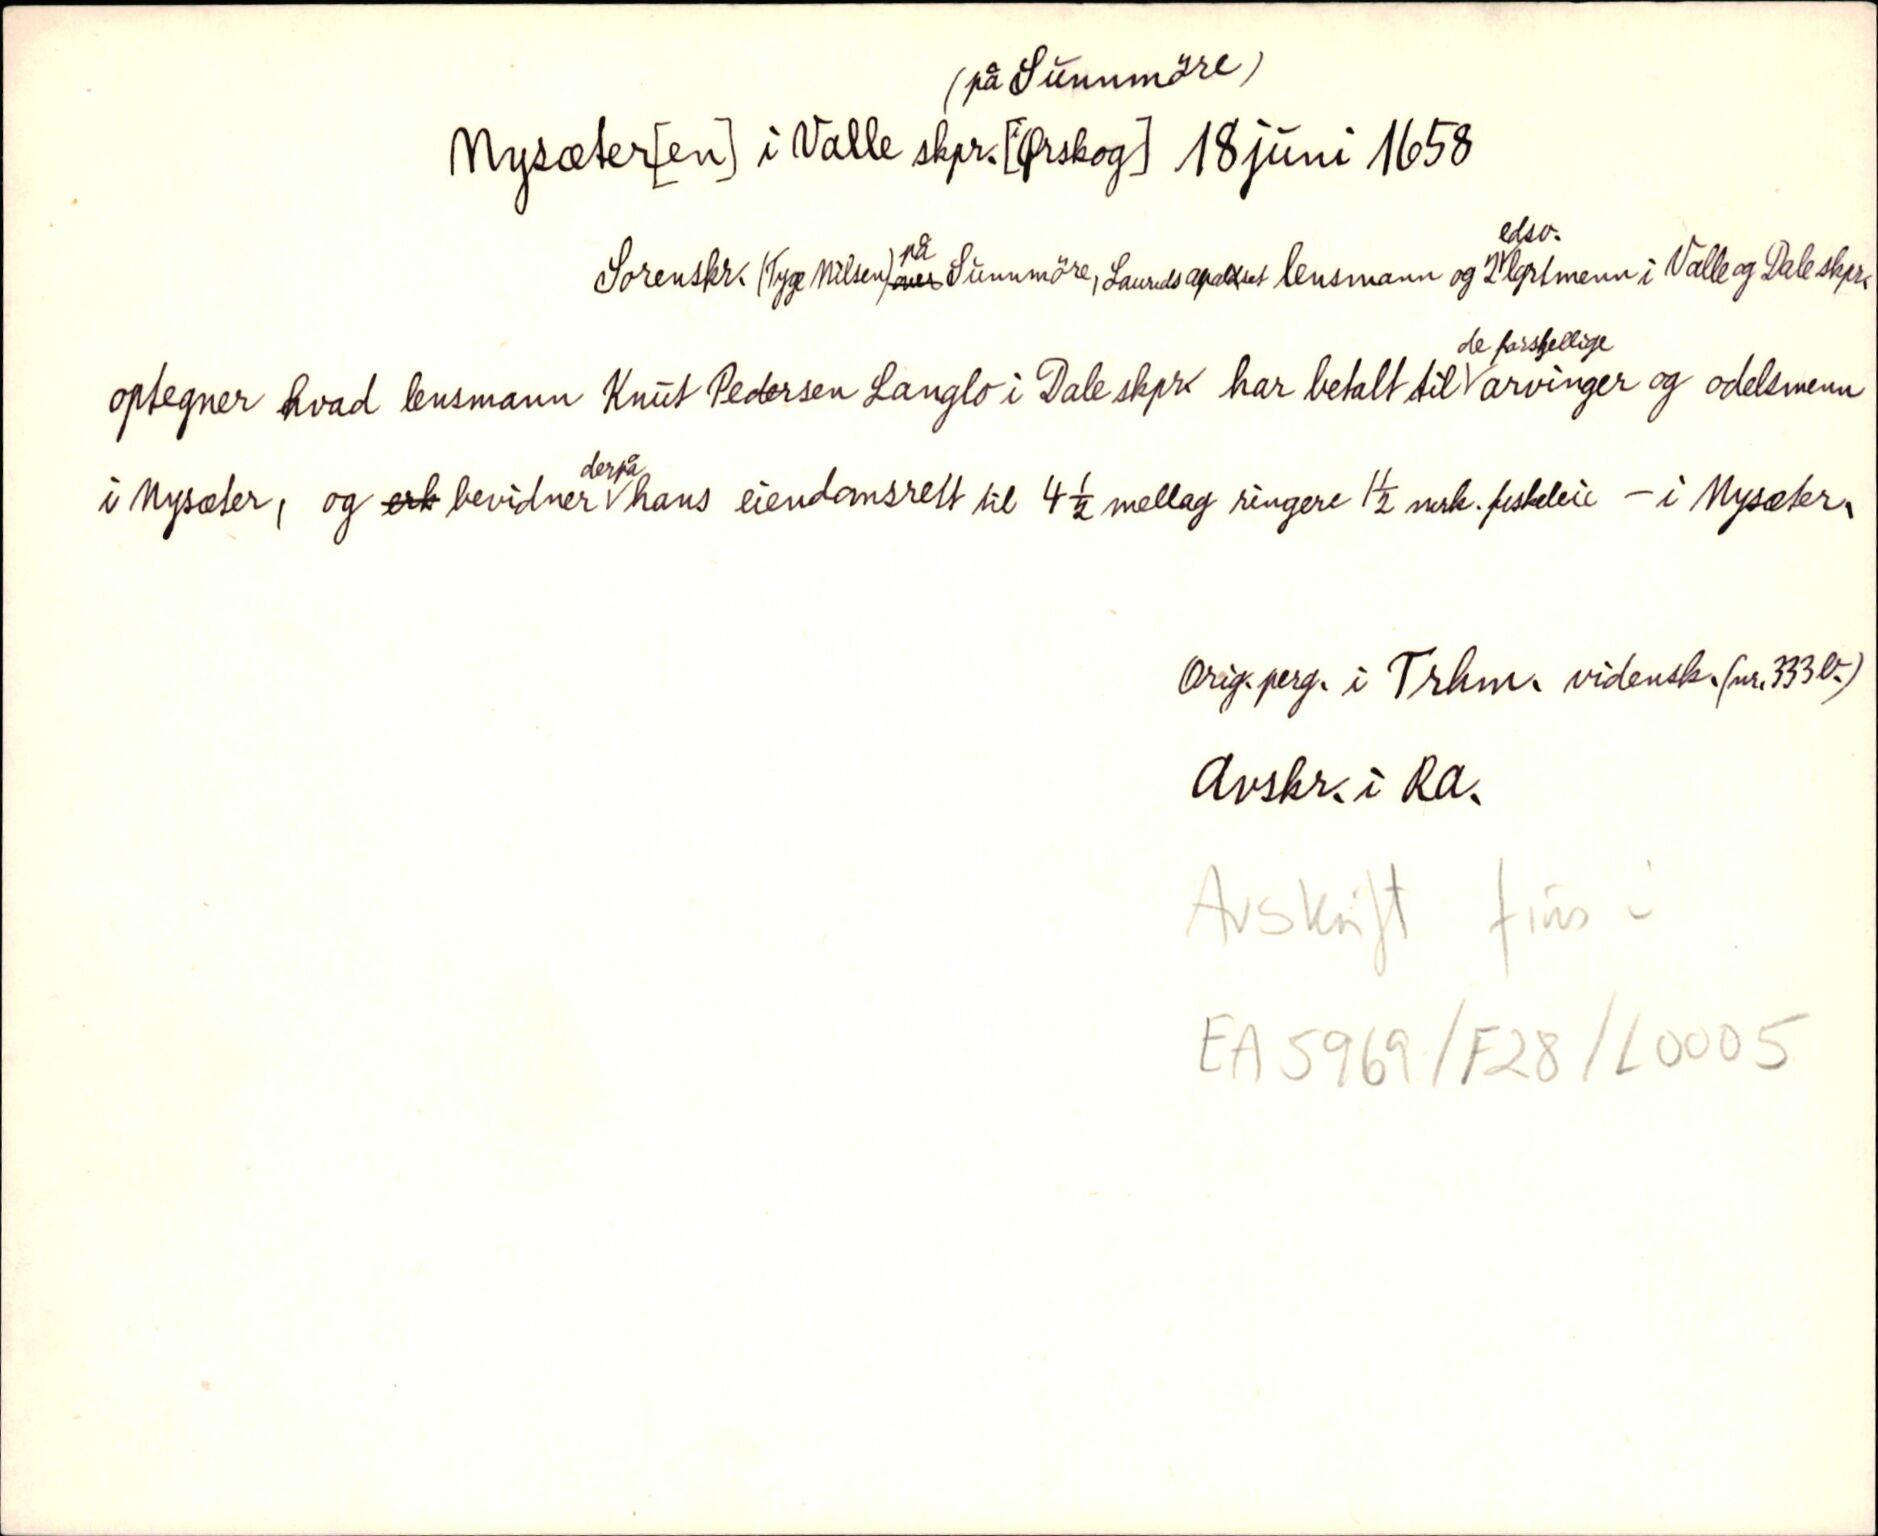 (på Sunnmöre)
Nysæter[en] i Valle skpr. [i Ørskog] 18 juni 1658
Sorenskr. (Tyge Nilsen) på Sunnmöre, Laurids lensmann og 2 edsv. lgrtmenn i Valle og Dale skpr.
optegner hvad lensmann Knut Pedersen Langlo i Dale skpr. har betalt til de forskjellige arvinger og odelsmenn
i Nysæter, og erk bevidner derpå hans eiendomsrett til 4 1/2 mellag ringere 1 1/2 mrk. fiskeleie - i Nysæter.
Orig. perg. i Trhm. vidensk. (nr. 333 b.)
Avskr. i RA.
Avskrift fins i
EA 5969/F28/L0005